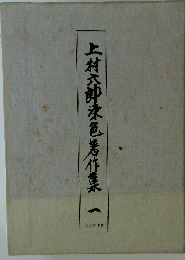 上村六郎染色著作集 一